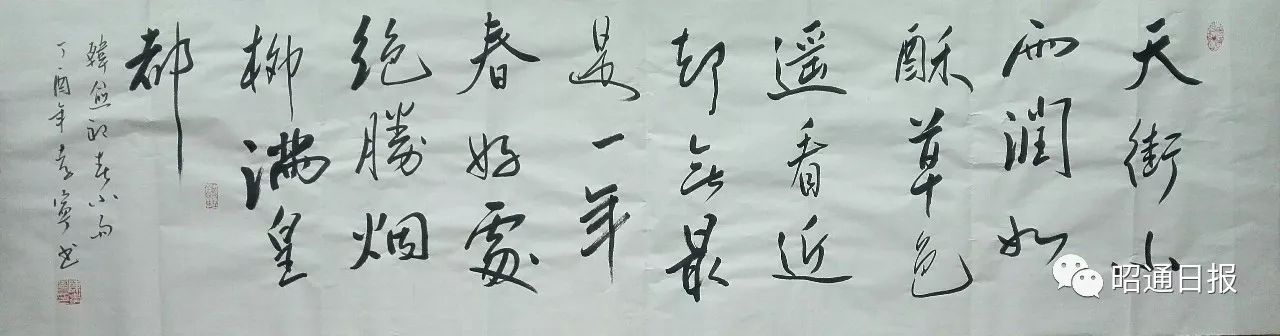 天街小
雨潤如
酥草色
遥看近
却無最
是一年
春好處
绝勝烟
柳滿皇
都
韓愈初春小雨
丁酉年 寧书
昭通日报